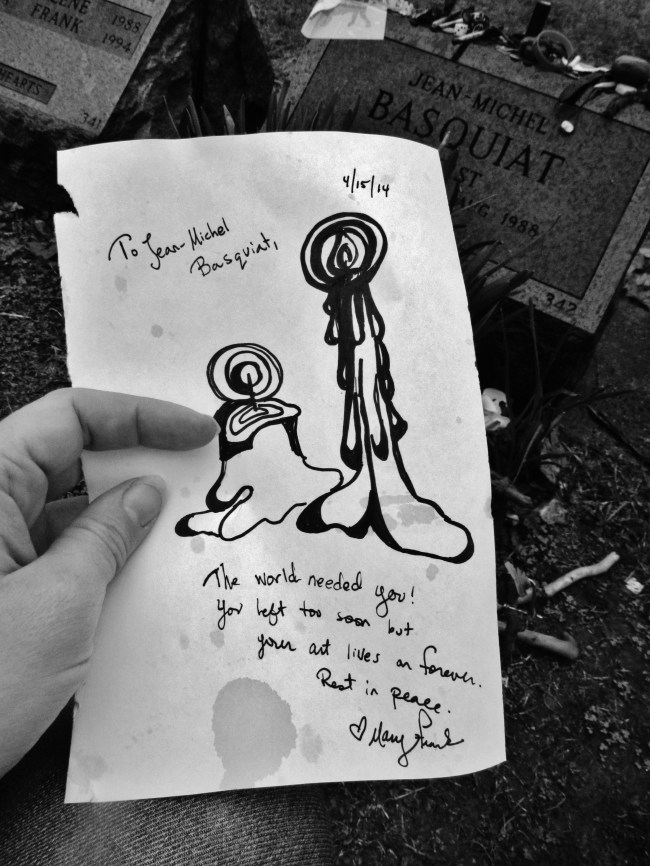 ENE
FRANK
1988
1994
HEARTS
341
JEAN-MICHEL
BASQUIAT
ST
1988
342
4/15/14
To Jean-Michel
Basquiat,
The world needed you!
You left too soon but
your art lives on forever.
Rest in peace.
♡ Mary